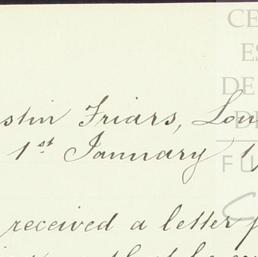 CE
ES
DE
DE
FU
stin Friars, Lon
1st January 1
received a letter